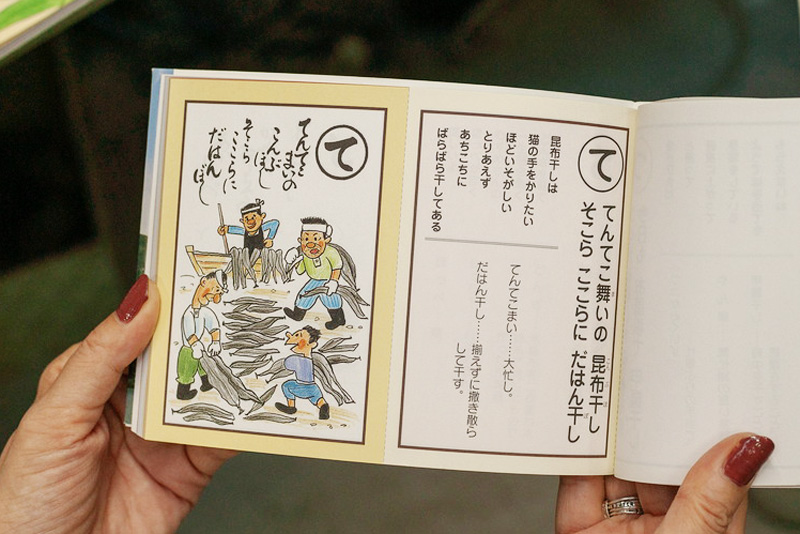 て
てんてこ舞いの 昆布干し
そこら ここらに だはん干し
昆布干しは
猫の手をかりたい
ほどいそがしい
とりあえず
あちこちに
ばらばら干してある
てんてこまい……大忙し。
だはん干し……揃えずに撒き散ら
して干す。
て
てんてこ
まいの
こんぶほし
そこら
ここらに
だはん
ぼし